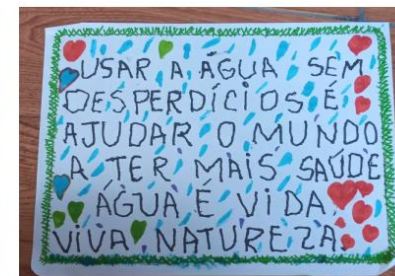 USAR A ÁGUA SEM
DESPERDÍCIOS É
AJUDAR O MUNDO
A TER MAIS SAÚDE
ÁGUA É VIDA
VIVA NATUREZA